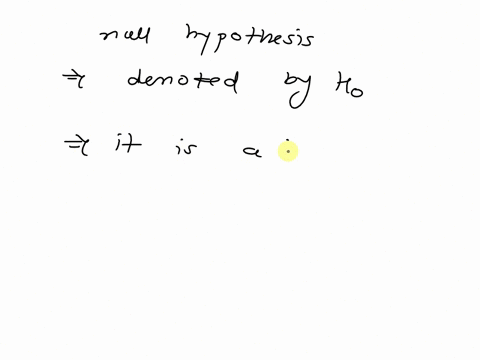 null hypothesis
⇒ denoted by H₀
⇒ it is a